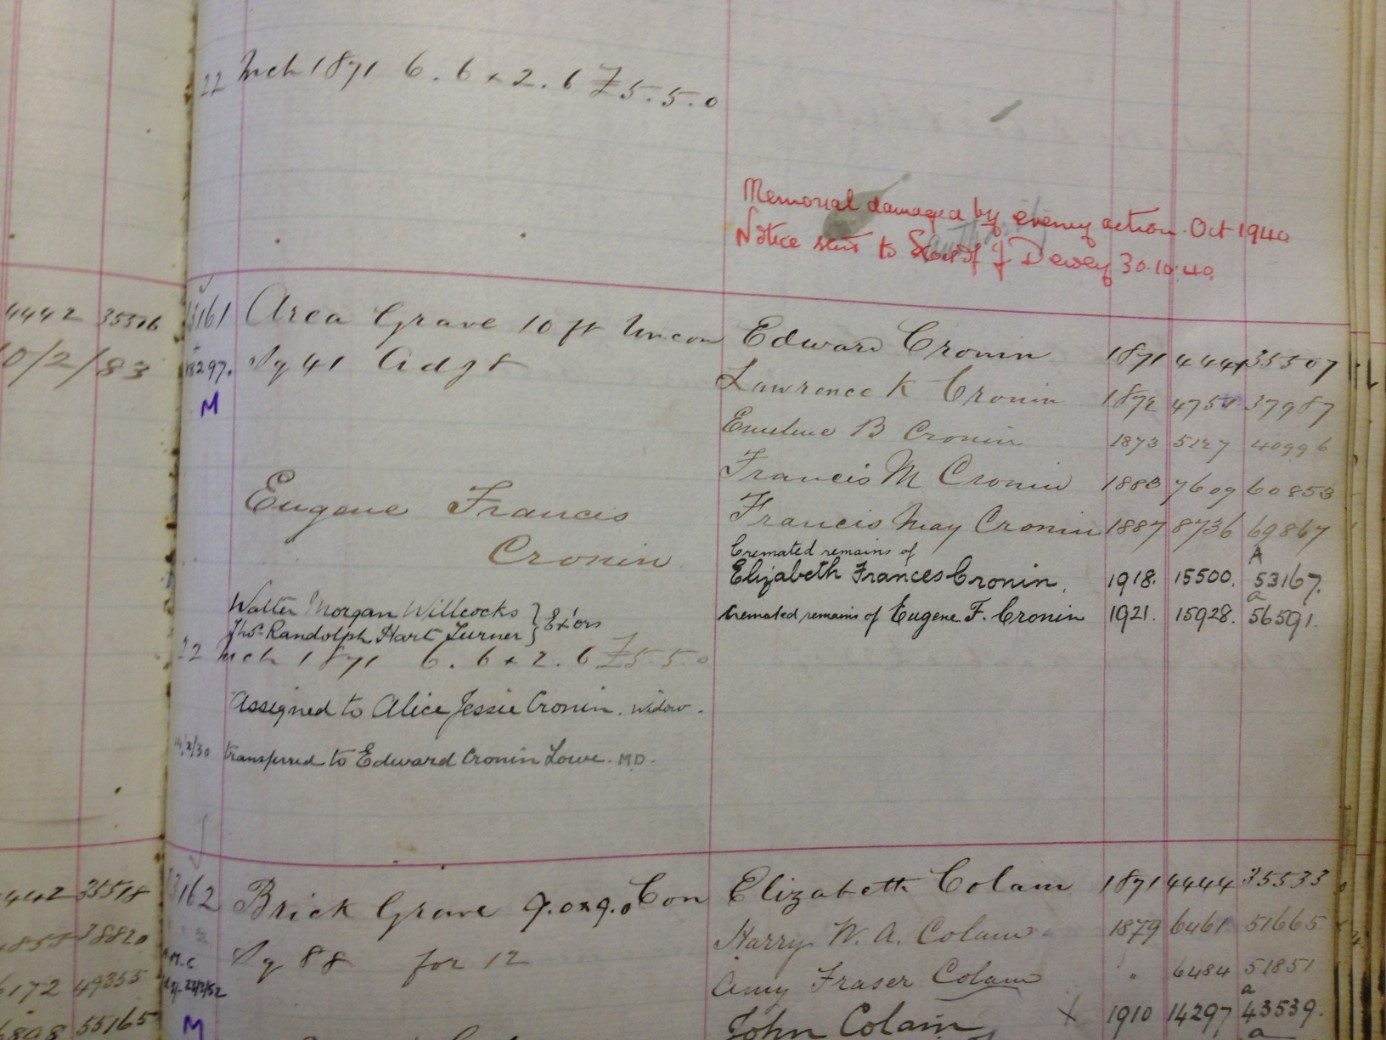 22 Mch 1871 6.6 x 2.6 £5.5.0
Memorial damaged by enemy action. Oct 1940
Notice sent to J Dewey 30.10.40
4442
13161 Area Grave 10 ft Uncon Edward Cronin 1871 4441 35507
10/2/83
18297. Sq 41 Adgt Lawrence K Cronin 1872 4758 37987
M
Emeline B Cronin 1873 5127 40996
Francis M Cronin 1883 7609 60853
Eugene Francis Cronin
Francis May Cronin 1887 8736 69867
Cremated remains of Elizabeth Frances Cronin. 1918. 15500. A 53167.
Walter Morgan Willcocks } Ex'ors
Thos. Randolph Hart Turner
Cremated remains of Eugene F. Cronin 1921. 15928. a 56591.
22 Mch 1871 6.6 x 2.6 £5.5.0
Assigned to Alice Jessie Cronin. widow.
transferred to Edward Cronin Lowe. MD.
4442 35518
13162 Brick Grave 9.0 x 9.0 Con Elizabeth Colam 1871 4444 35533
38820
Harry W. A. Colam 1879 6461 51665
Sq 88 for 12
6172 49355
Amy Fraser Colam " 6484 51851
6808 55165
M
John Colam X 1910 14297 a 43539.
a